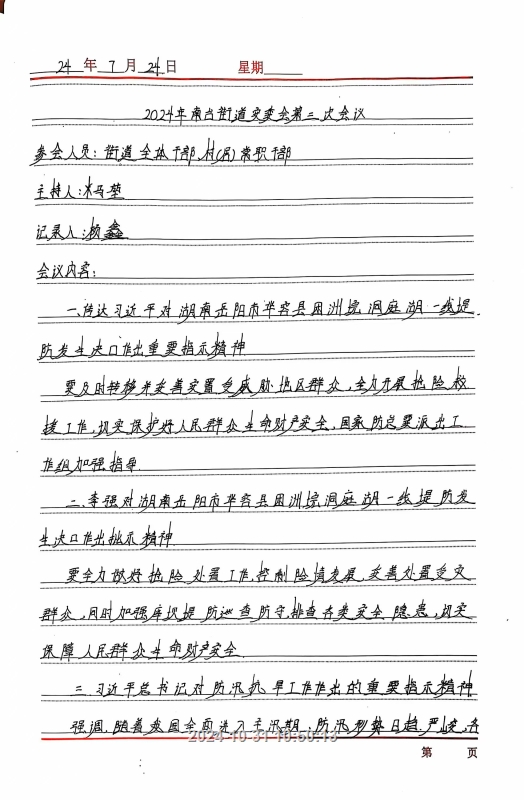 24 年 7 月 24 日 星期
2024年南台街道安委会第三次会议
参会人员：街道全体干部、村(居)常职干部
主持人：
记录人：顾鑫
会议内容：
一、传达习近平对湖南岳阳市华容县团洲垸洞庭湖一线堤
防发生决口作出重要指示精神
要及时转移并妥善安置受威胁地区群众，全力开展抢险救
援工作，切实保护好人民群众生命财产安全，国家防总要派出工
作组加强指导
二、李强对湖南岳阳市华容县团洲垸洞庭湖一线堤防发
生决口作出批示精神
要全力做好抢险处置工作，控制险情发展，妥善处置受灾
群众，同时加强库坝堤防巡查防守，排查各类安全隐患，切实
保障人民群众生命财产安全
三、习近平总书记对防汛抗旱工作作出的重要指示精神
强调，随着我国全面进入主汛期，防汛形势日趋严峻，各
2024-10-31 10:50:13
第 页